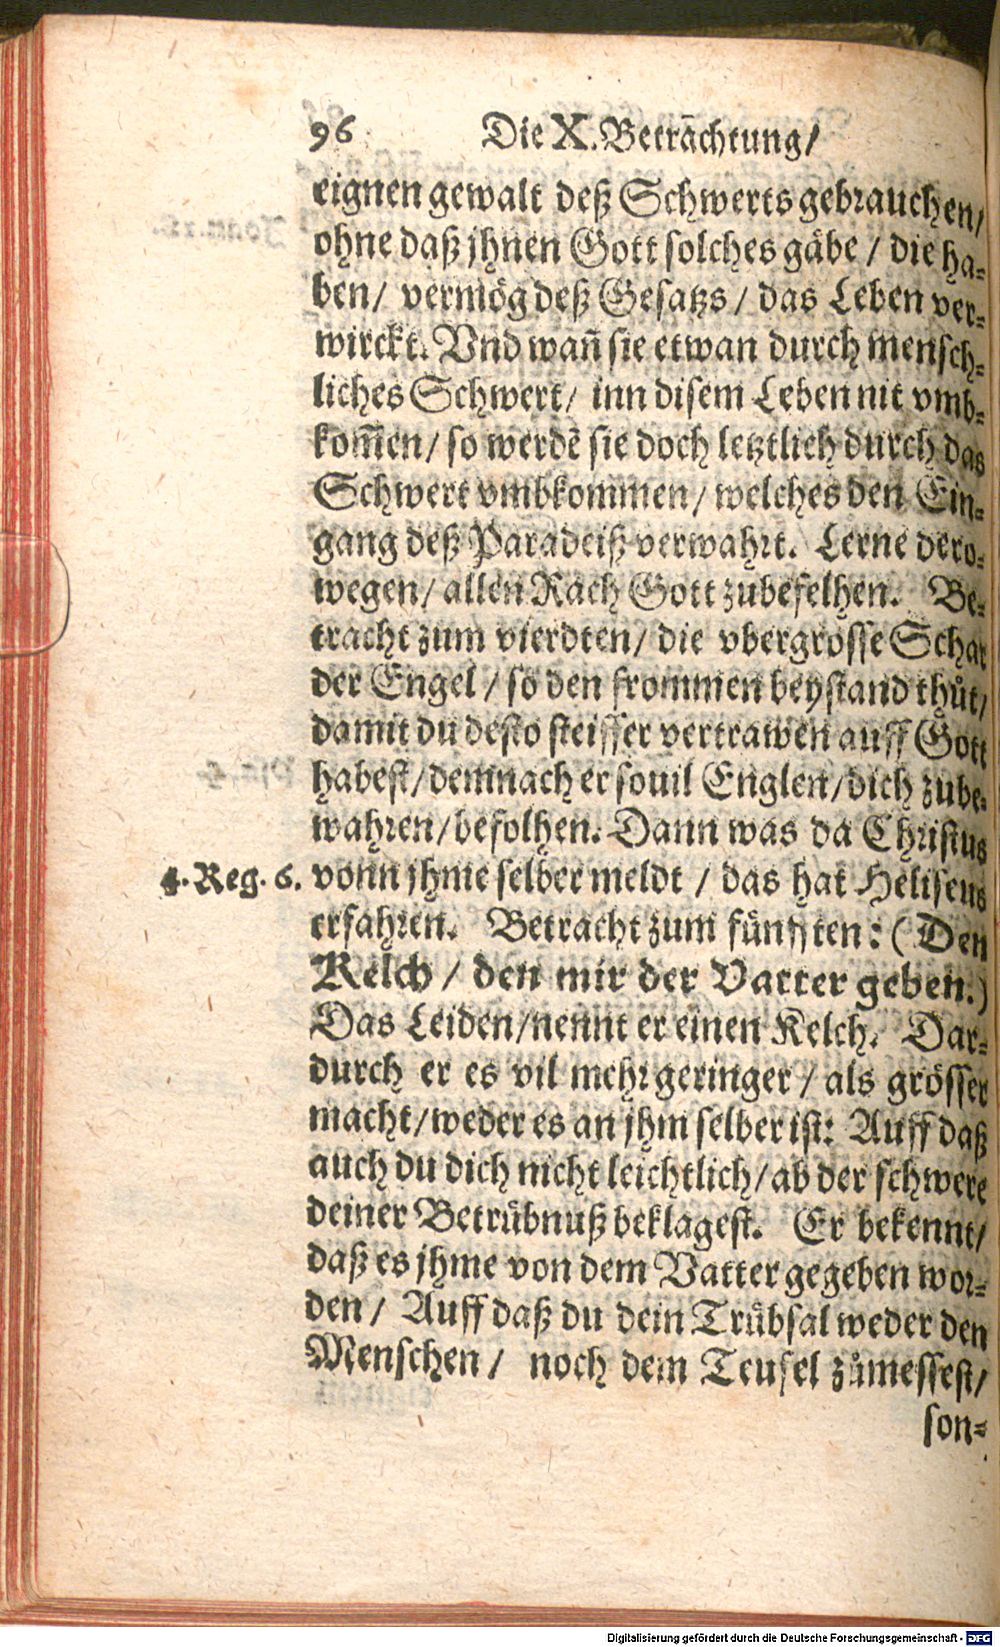 96 Die X. Betrachtung/
eignen gewalt deß Schwerts gebrauchen/
ohne daß jhnen Gott solches gäbe / die ha-
ben/ vermög deß Gesatzs / das Leben ver-
wirckt. Vnd wañ sie etwan durch mensch-
liches Schwert/ inn disem Leben nit vmb-
kom̃en/ so werdẽ sie doch letztlich durch das
Schwert vmbkommen / welches den Ein-
gang deß Paradeiß verwahrt. Lerne dero-
wegen / allen Rach Gott zubefelhen. Be-
tracht zum vierdten/ die vbergrosse Schar
der Engel / so den frommen beystand thůt/
damit du desto steiffer vertrawen auff Gott
habest/ demnach er souil Englen/ dich zube-
wahren/ befolhen. Dann was da Christus
4. Reg. 6. vonn jhme selber meldt / das hat Heliseus
erfahren. Betracht zum fünfften: (Den
Kelch / den mir der Vatter geben.)
Das Leiden/ nennt er einen Kelch. Dar-
durch er es vil mehr geringer / als grösser
macht/ weder es an jhm selber ist: Auff daß
auch du dich nicht leichtlich/ ab der schwere
deiner Betrübnuß beklagest. Er bekennt/
daß es jhme von dem Vatter gegeben wor-
den / Auff daß du dein Trübsal weder den
Menschen / noch dem Teufel zůmessest/
son-
Digitalisierung gefördert durch die Deutsche Forschungsgemeinschaft - DFG